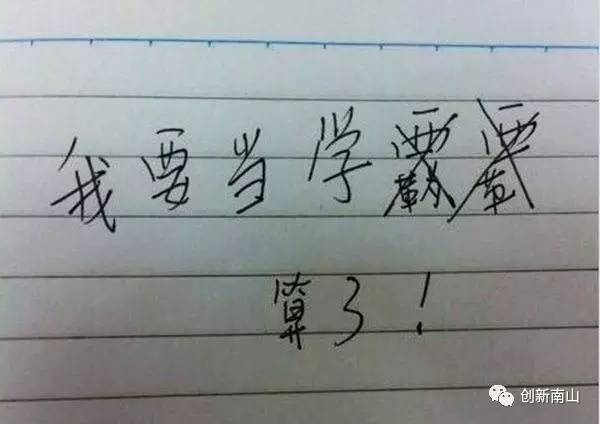 我要当学
算了！
创新南山